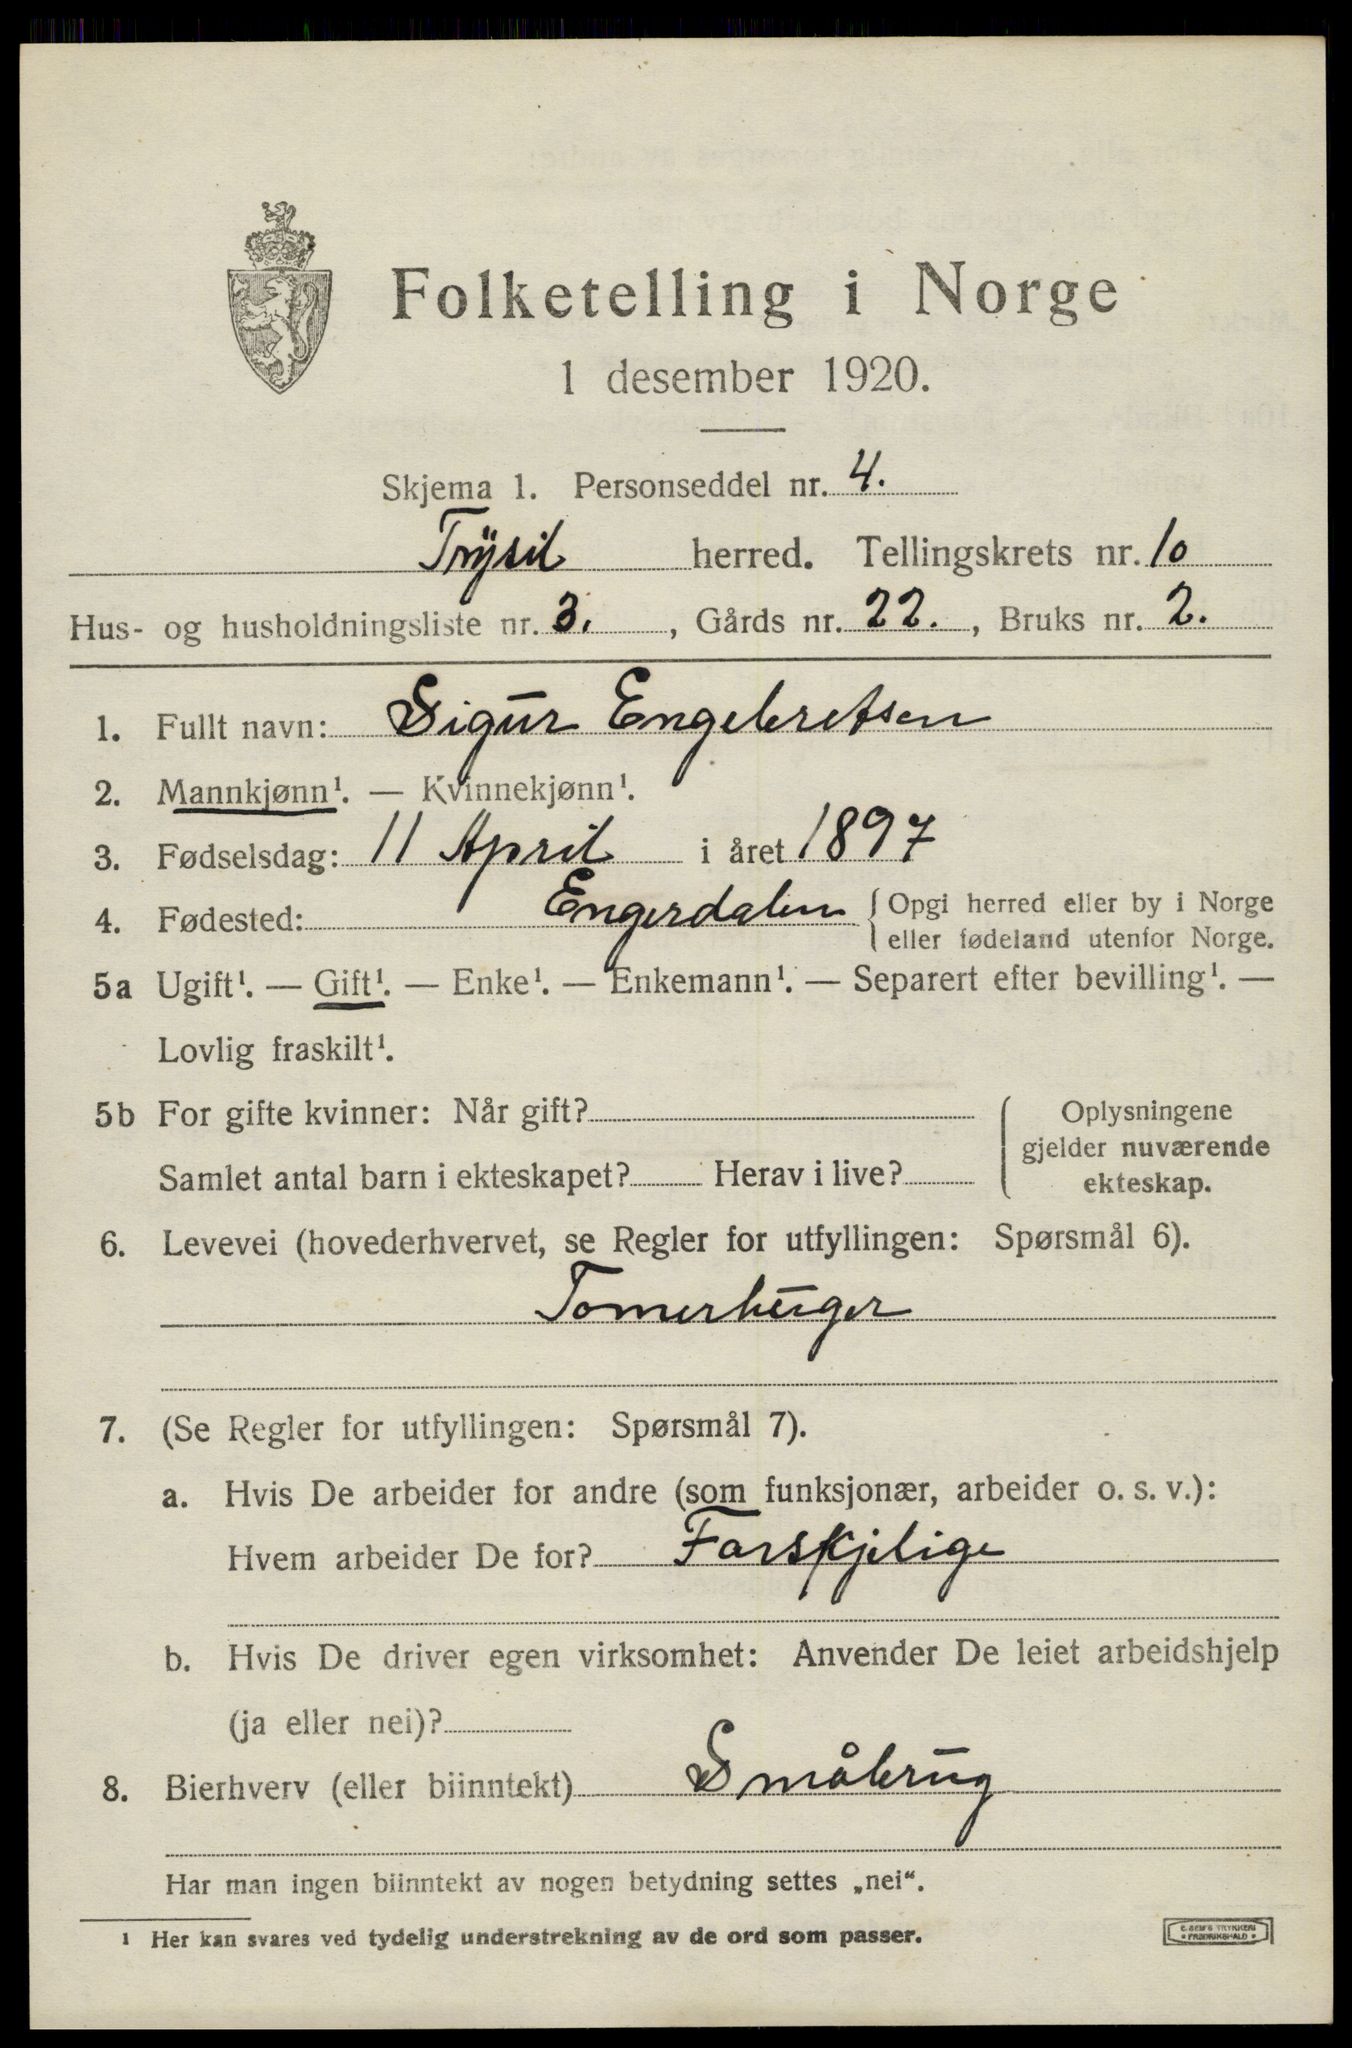 Folketelling i Norge
1 desember 1920.
Skjema 1. Personseddel nr. 4.
Trysil herred. Tellingskrets nr. 10
Hus- og husholdningsliste nr. 3. , Gårds nr. 22. , Bruks nr. 2.
1. Fullt navn: Sigur Engebretsen
2. Mannkjønn¹. — Kvinnekjønn¹.
3. Fødselsdag: 11 April i året 1897
4. Fødested: Engerdalen { Opgi herred eller by i Norge
eller fødeland utenfor Norge.
5a Ugift¹. — Gift¹. — Enke¹. — Enkemann¹. — Separert efter bevilling¹. —
Lovlig fraskilt¹.
5b For gifte kvinner: Når gift?
Samlet antal barn i ekteskapet? Herav i live?
Oplysningene
gjelder nuværende
ekteskap.
6. Levevei (hovederhvervet, se Regler for utfyllingen: Spørsmål 6).
Tomerhuger
7. (Se Regler for utfyllingen: Spørsmål 7).
a. Hvis De arbeider for andre (som funksjonær, arbeider o. s. v.):
Hvem arbeider De for? Forskjelige
b. Hvis De driver egen virksomhet: Anvender De leiet arbeidshjelp
(ja eller nei)?
8. Bierhverv (eller biinntekt) Småbrug
Har man ingen biinntekt av nogen betydning settes „nei“.
1 Her kan svares ved tydelig understrekning av de ord som passer.
E. SEM'S TRYKKERI
* FREDRIKSHALD *